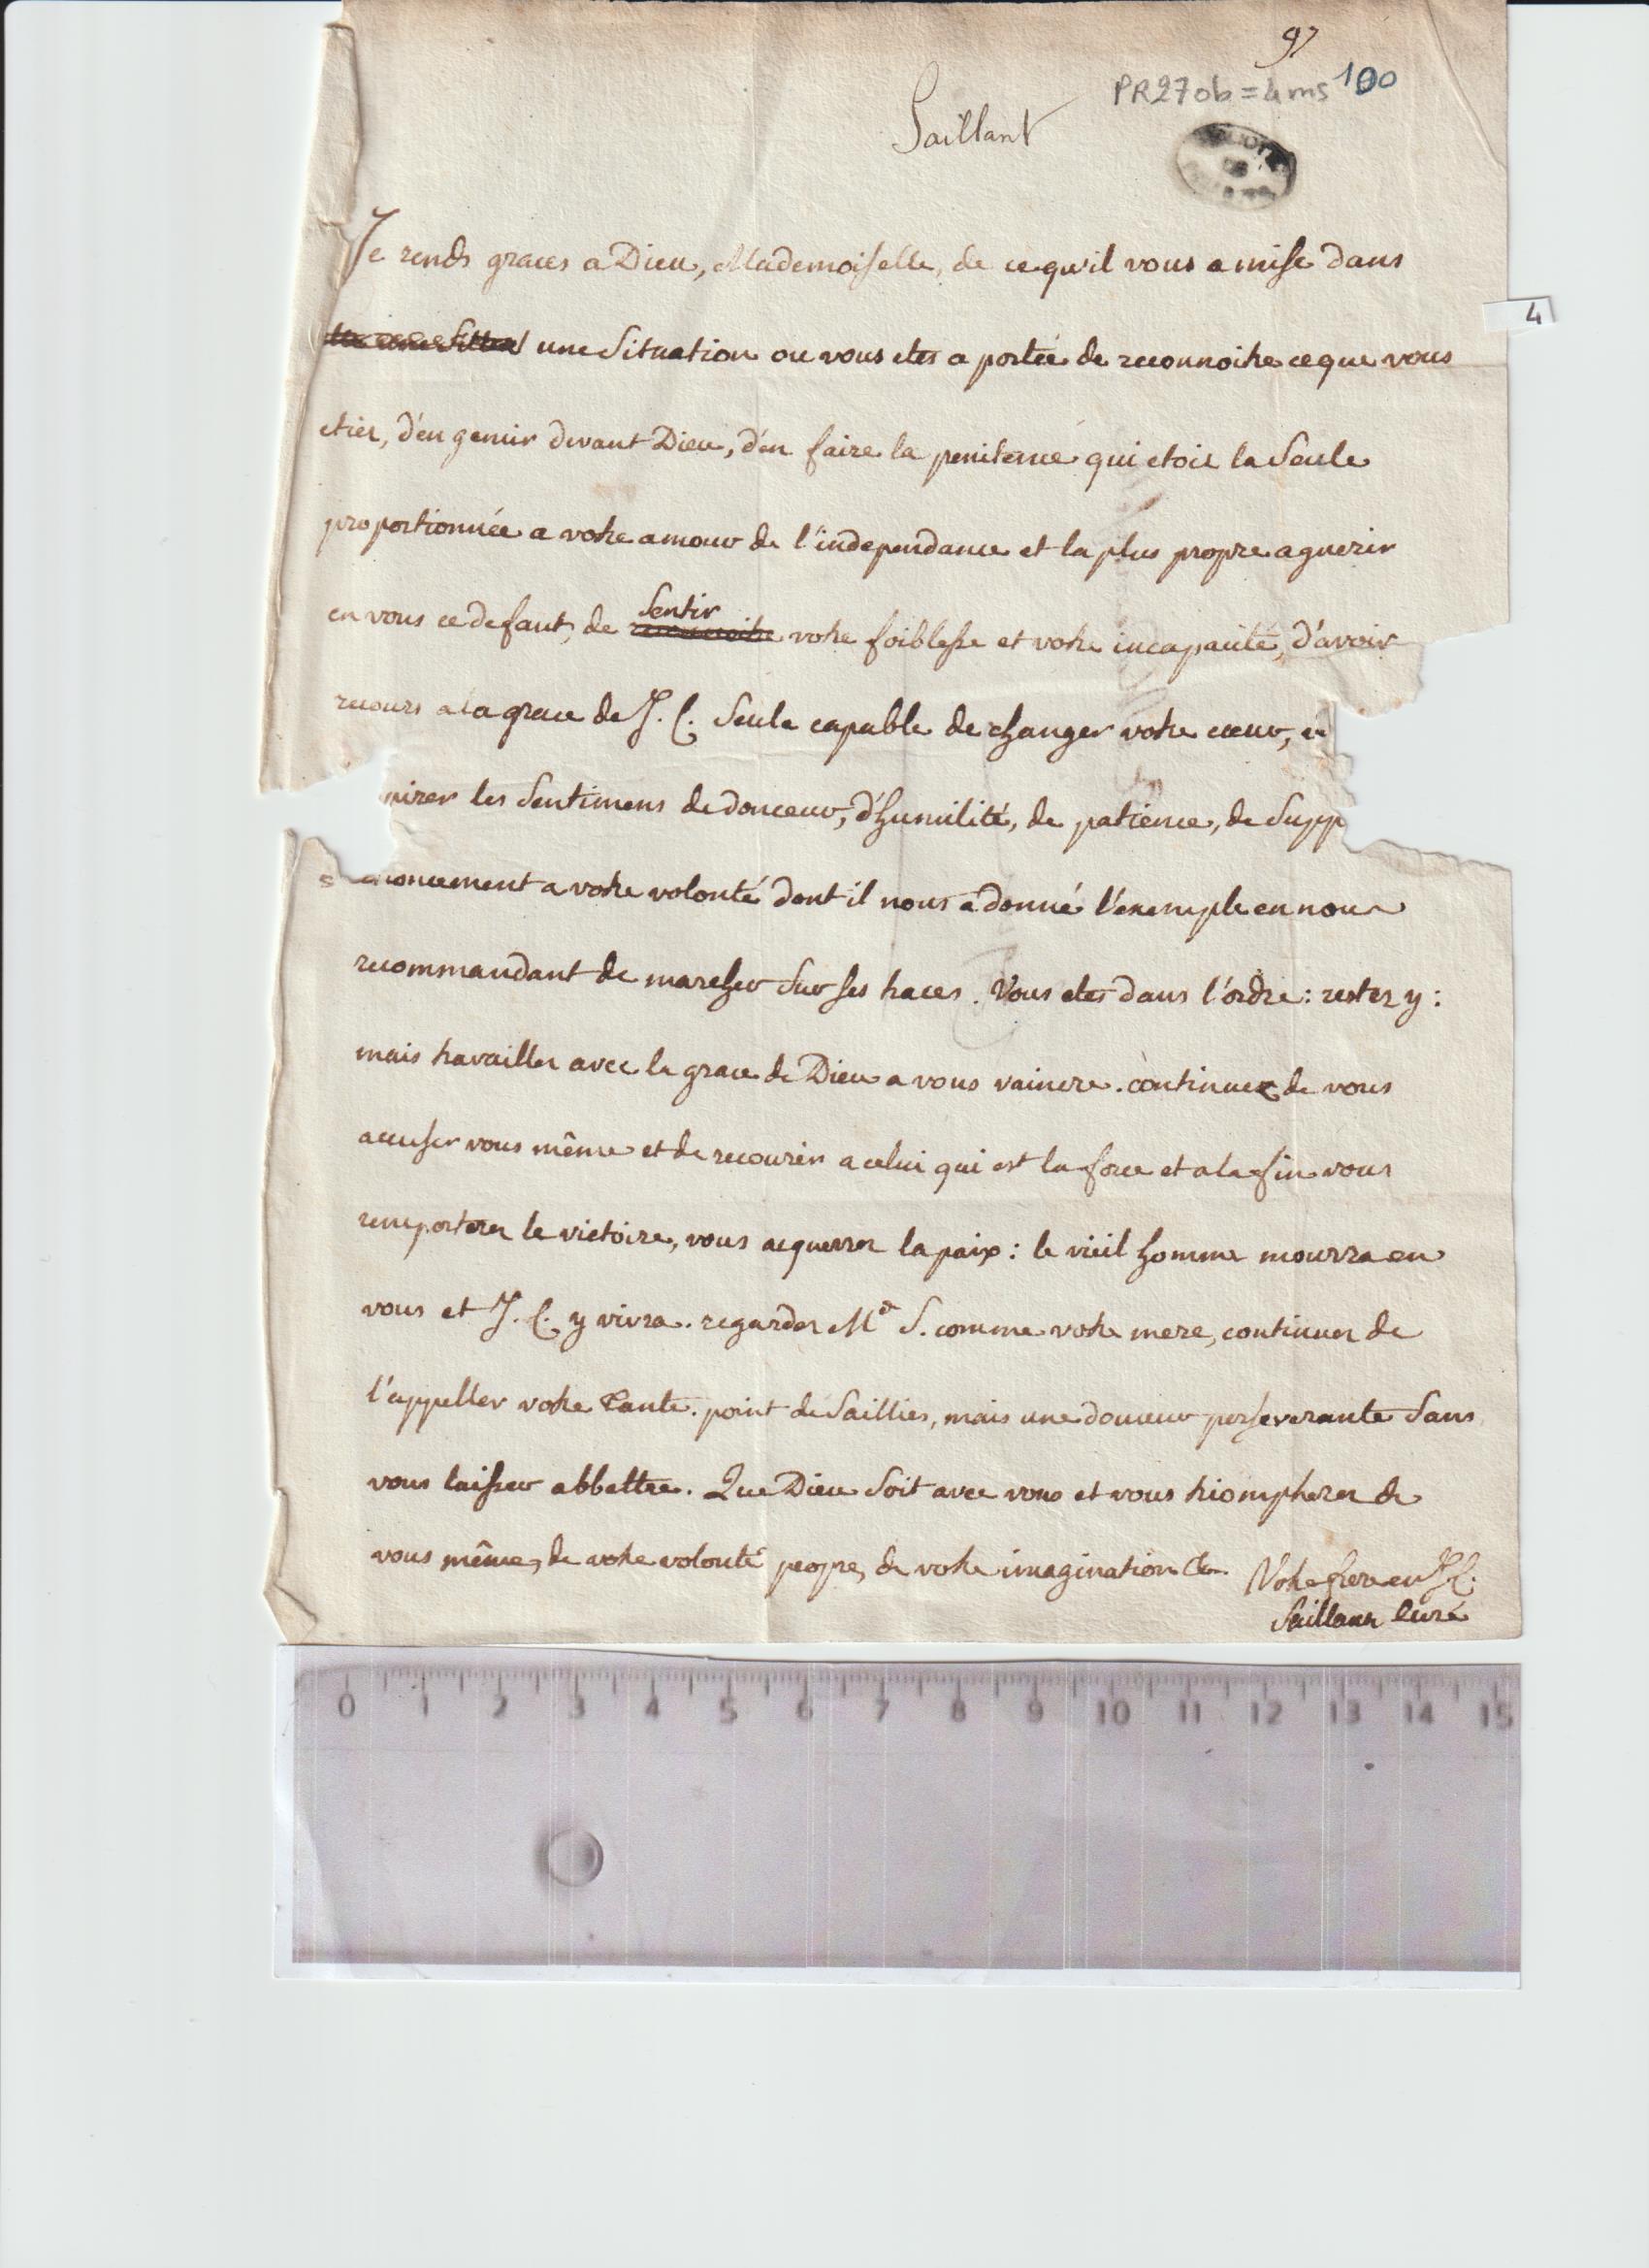 97
PR270b=4ms 100
Saillant
4
Je rends graces a Dieu, Mademoiselle, de ce qu'il vous a mise dans
une Situation ou vous etes a portée de reconnoitre ce que vous
etiez, d'en gemir devant Dieu, d'en faire la penitence qui etoit la Seule
proportionnée a votre amour de l'independance et la plus propre a guerir
Sentir
en vous ce defaut, de reconnoitre votre foiblesse et votre incapacité, d'avoir
recours a la grace de J. C. Seule capable de changer votre coeur, et
pirer les Sentimens de douceur, d'humilité, de patience, de Supp
noncement a votre volonté dont il nous a donné l'exemple en nous
recommandant de marcher Sur ses traces. Vous etes dans l'ordre : restez y :
mais travaillez avec la grace de Dieu a vous vaincre. continuez de vous
accuser vous même et de recourir a celui qui est la force et a la fin vous
remporterez la victoire, vous acquerrez la paix : le vieil homme mourra en
vous et J. C. y vivra. regardez Me S. comme votre mere, continuez de
l'appeller votre tante. point de Saillies, mais une douceur perseverante Sans
vous laisser abbattre. Que Dieu Soit avec vous et vous triompherez de
vous même, de votre volonté propre, de votre imagination &c. Votre frere en J. C.
Saillant Curé
0 1 2 3 4 5 6 7 8 9 10 11 12 13 14 15